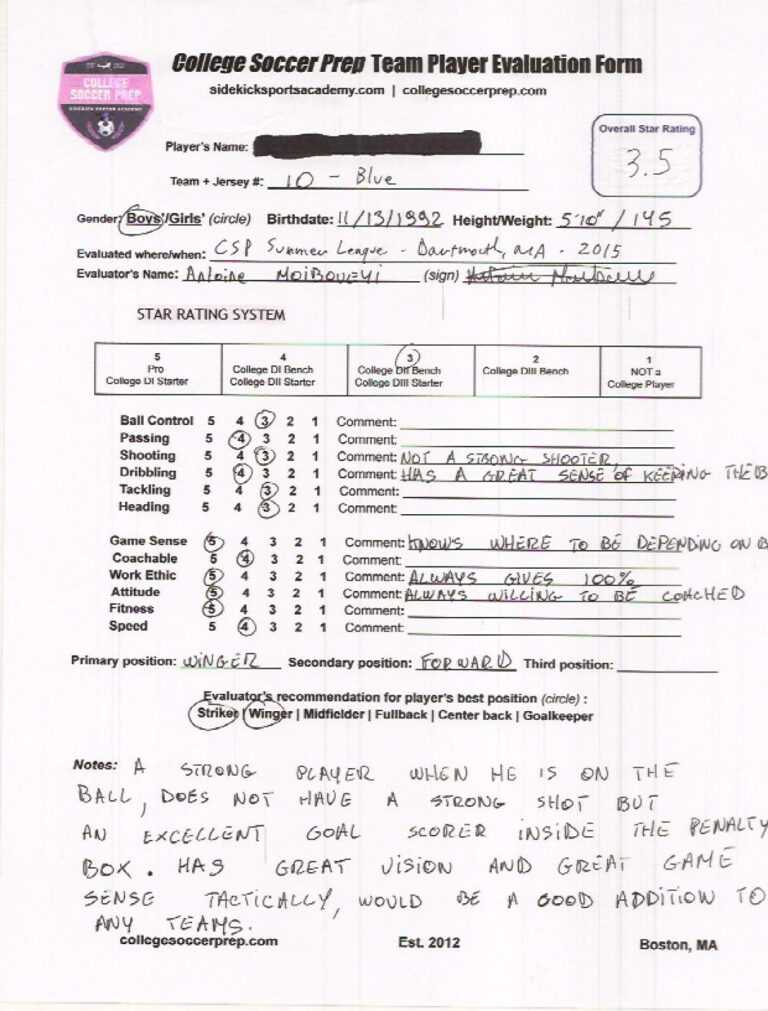 College Soccer Prep Team Player Evaluation Form
sidekicksportsacademy.com | collegesoccerprep.com
COLLEGE
SOCCER PREP
Overall Star Rating
3.5
Player's Name:
Team + Jersey #: 10 - Blue
Gender: Boys'/Girls' (circle) Birthdate: 11/13/1992 Height/Weight: 5'10" / 145
Evaluated where/when: CSP Summer League - Dartmouth, MA - 2015
Evaluator's Name: Antoine MOIBOUEYI (sign)
STAR RATING SYSTEM
5 4 3 2 1
Pro College DI Bench College DII Bench College DIII Bench NOT a
College DI Starter College DII Starter College DIII Starter College Player
Ball Control 5 4 3 2 1 Comment:
Passing 5 4 3 2 1 Comment:
Shooting 5 4 3 2 1 Comment: NOT A STRONG SHOOTER
Dribbling 5 4 3 2 1 Comment: HAS A GREAT SENSE OF KEEPING THE B
Tackling 5 4 3 2 1 Comment:
Heading 5 4 3 2 1 Comment:
Game Sense 5 4 3 2 1 Comment: KNOWS WHERE TO BE DEPENDING ON B
Coachable 5 4 3 2 1 Comment:
Work Ethic 5 4 3 2 1 Comment: ALWAYS GIVES 100%
Attitude 5 4 3 2 1 Comment: ALWAYS WILLING TO BE COACHED
Fitness 5 4 3 2 1 Comment:
Speed 5 4 3 2 1 Comment:
Primary position: WINGER Secondary position: FORWARD Third position:
Evaluator's recommendation for player's best position (circle) :
Striker | Winger | Midfielder | Fullback | Center back | Goalkeeper
Notes: A STRONG PLAYER WHEN HE IS ON THE
BALL, DOES NOT HAVE A STRONG SHOT BUT
AN EXCELLENT GOAL SCORER INSIDE THE PENALTY
BOX. HAS GREAT VISION AND GREAT GAME
SENSE TACTICALLY, WOULD BE A GOOD ADDITION TO
ANY TEAMS.
collegesoccerprep.com Est. 2012 Boston, MA